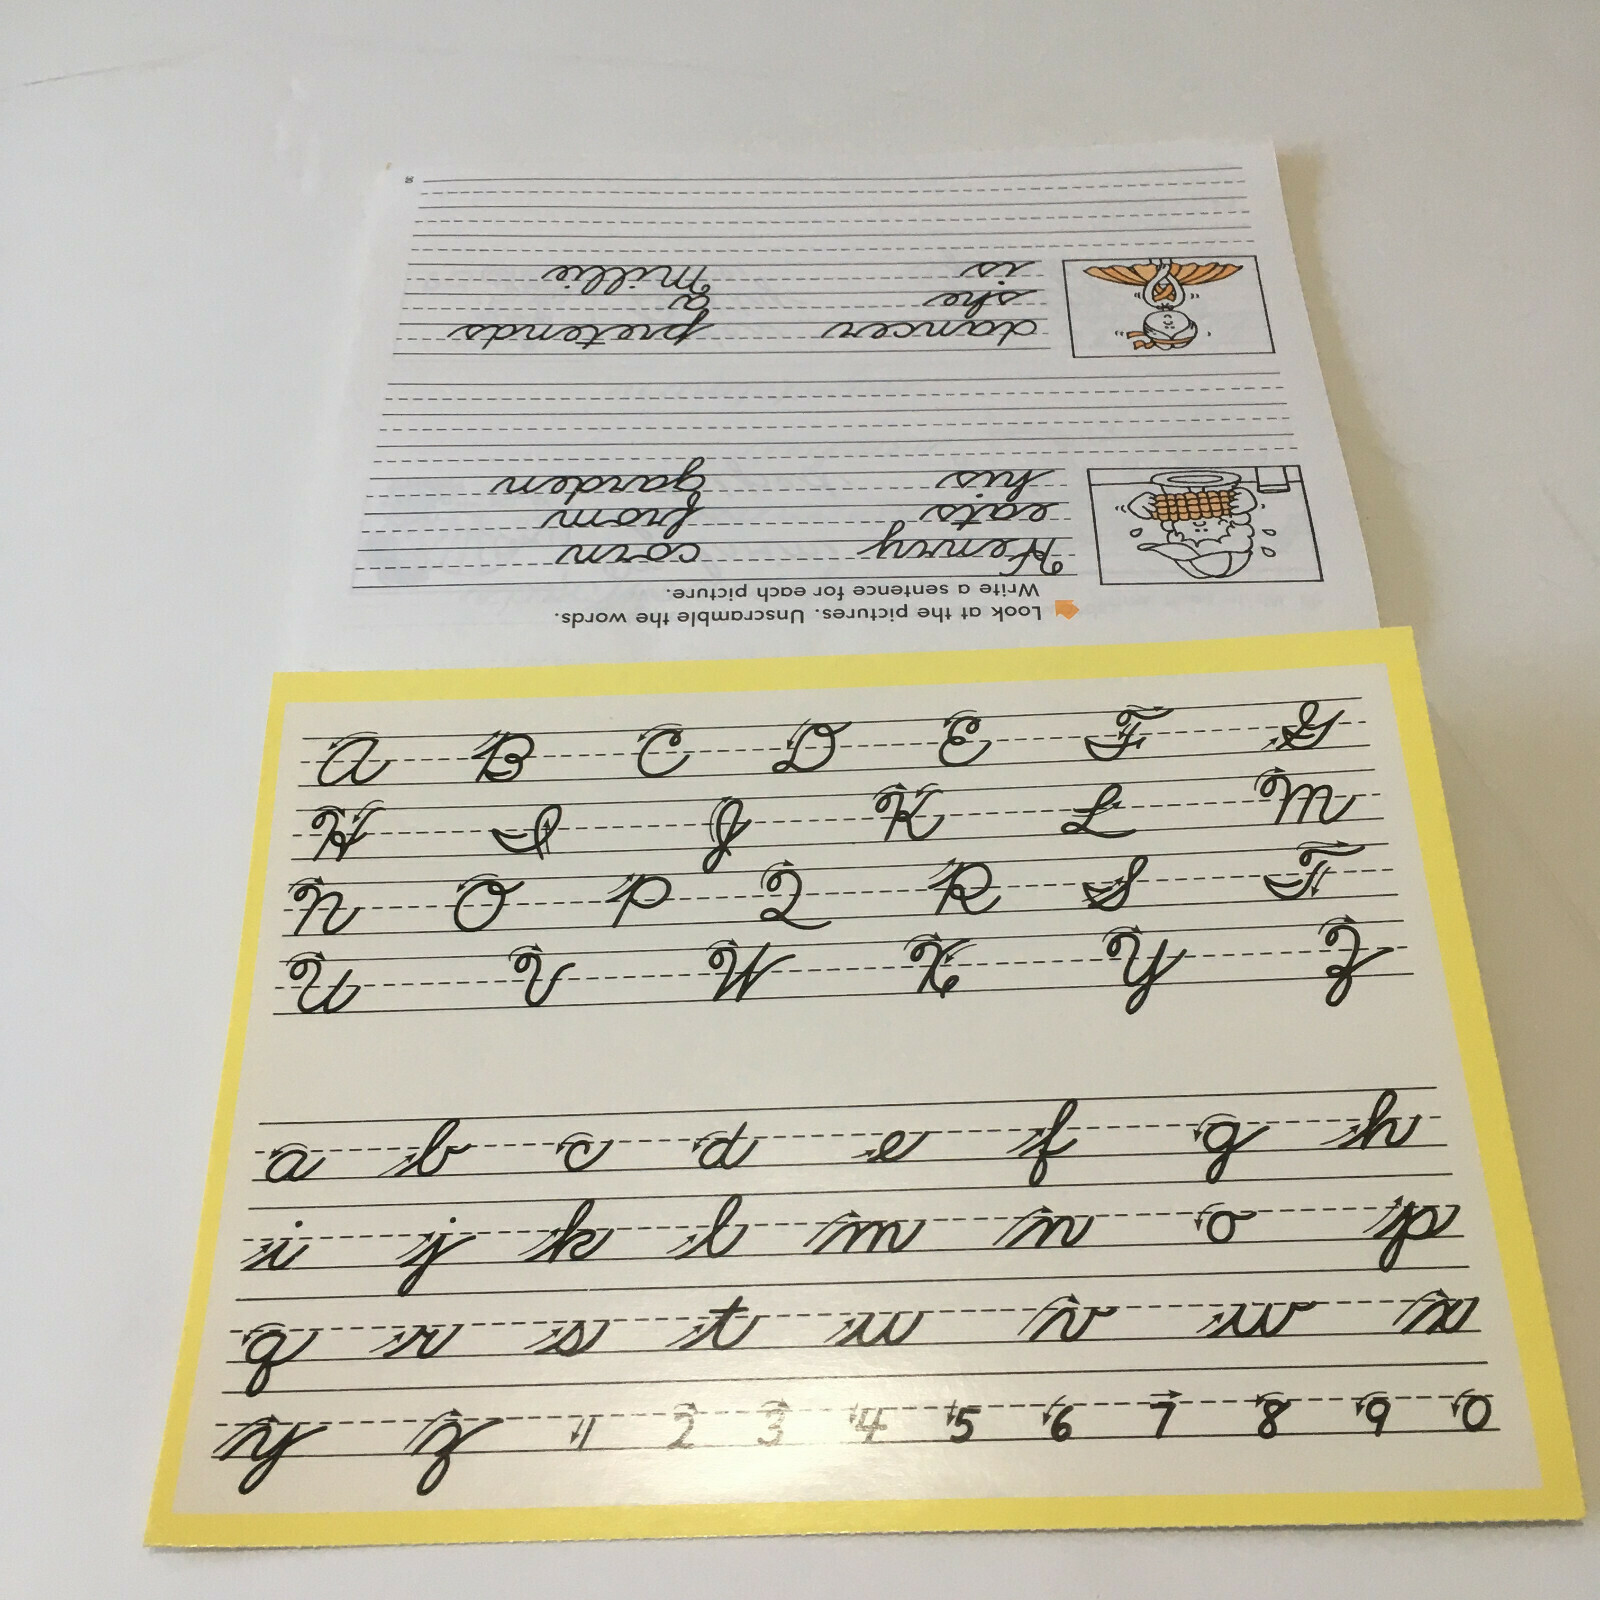 Look at the pictures. Unscramble the words.
Write a sentence for each picture.
Henry corn
eats from
his garden
dancer pretends
she a
is Millie
8
A B C D E F G
H I J K L M
N O P Q R S T
U V W X Y Z
a b c d e f g h
i j k l m n o p
q r s t u v w x
y z 1 2 3 4 5 6 7 8 9 0